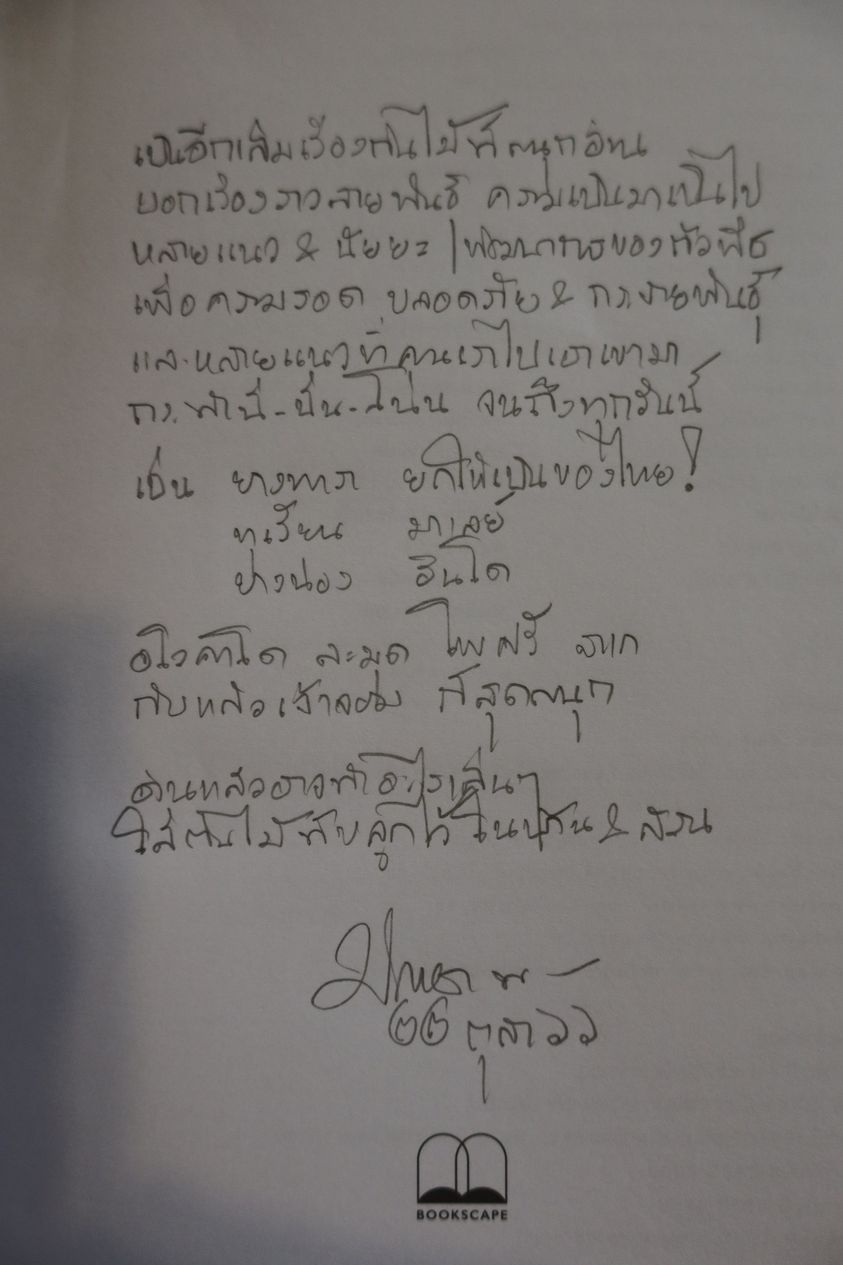 เป็นอีกเล่มเรื่องต้นไม้ที่สนุกอ่าน
บอกเรื่องราวสายพันธุ์ ความเป็นมาเป็นไป
หลายแนว & นัยยะ พัฒนาการของตัวพืช
เพื่อความรอด ปลอดภัย & กระจายพันธุ์
และหลายแนวที่คนเราไปเอาเขามา
กระทำนี่-นั่น-โน่น จนถึงทุกวันนี้
เช่น ยางพารา ยกให้เป็นของไทย!
ทุเรียน มาเลย์
ยางน่อง อินโด
อโวคาโด ละมุด โพศรี
กับหลัว เจ้าจอม ก็สุดสนุก
อ่านแล้วอาจทำอะไรเล่นๆ
ใส่ต้นไม้กับลูกไว้ในบ้าน & สวน
๒๒ ตุลา ๖๖
BOOKSCAPE